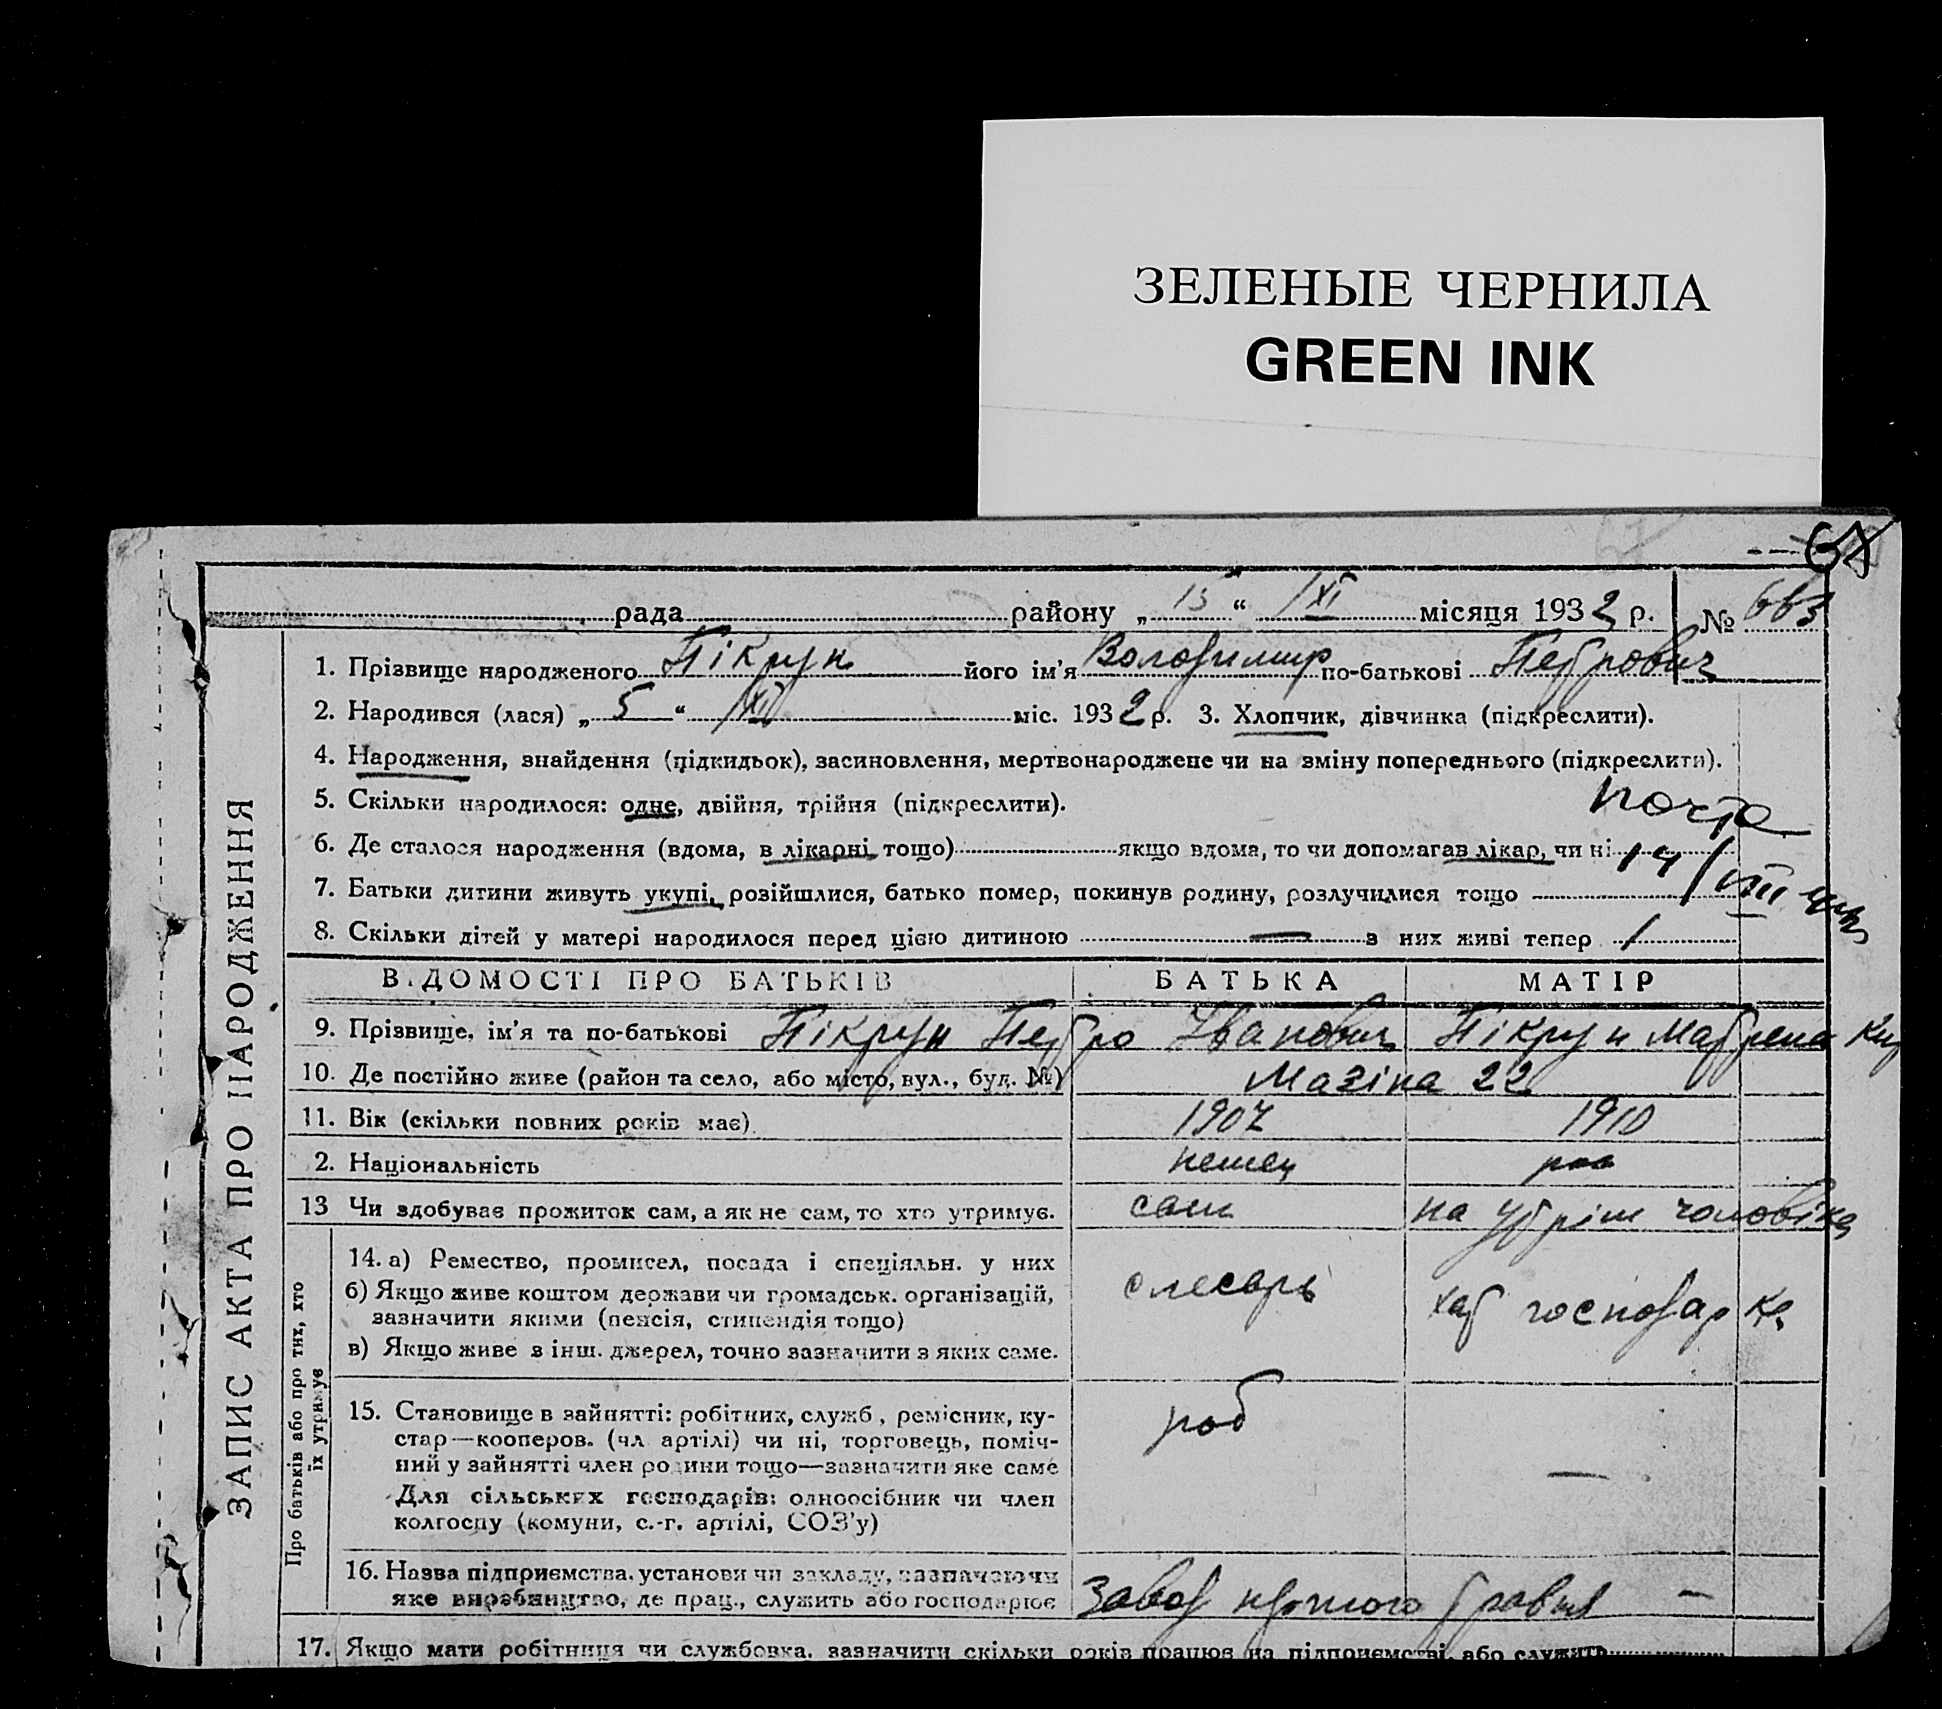 ЗЕЛЕНЫЕ ЧЕРНИЛА
GREEN INK
рада району „15“ /XI місяця 1932 р. № 663
1. Прізвище народженого Пікрун його ім'я Володимир по-батькові Петрович
2. Народився (лася) „5“ /XI міс. 1932 р. 3. Хлопчик, дівчинка (підкреслити).
4. Народження, знайдення (підкидьок), засиновлення, мертвонароджене чи на зміну попереднього (підкреслити).
5. Скільки народилося: одне, двійня, трійня (підкреслити).
почта
6. Де сталося народження (вдома, в лікарні тощо) якщо вдома, то чи допомагав лікар, чи ні
14/VIII
7. Батьки дитини живуть укупі, розійшлися, батько помер, покинув родину, розлучилися тощо
8. Скільки дітей у матері народилося перед цією дитиною — з них живі тепер 1
ЗАПИС АКТА ПРО НАРОДЖЕННЯ
ВІДОМОСТІ ПРО БАТЬКІВ БАТЬКА МАТІР
9. Прізвище, ім'я та по-батькові Пікрун Петро Іванович Пікрун Мотрена
10. Де постійно живе (район та село, або місто, вул., буд. №) Мазіна 22
11. Вік (скільки повних років має) 1907 1910
2. Національність немец
13 Чи здобуває прожиток сам, а як не сам, то хто утримує. сам на утрім чоловіка
Про батьків або про тих, хто
їх утримує
14. а) Ремество, промисел, посада і спеціяльн. у них
б) Якщо живе коштом держави чи громадськ. організацій,
зазначити якими (пенсія, стипендія тощо)
в) Якщо живе з інш. джерел, точно зазначити з яких саме.
слесарь хат господарка
15. Становище в зайнятті: робітник, служб, ремісник, ку-
стар—кооперов. (чл артілі) чи ні, торговець, поміч-
ний у зайнятті член родини тощо—зазначити яке саме
Для сільських господарів: одноосібник чи член
колгоспу (комуни, с.-г. артілі, СОЗ'у)
роб —
16. Назва підприємства, установи чи закладу, зазначаючи
яке виробництво, де прац., служить або господарює
Завод —
17. Якщо мати робітниця чи службовка, зазначити скільки років працює на підприємстві або служить